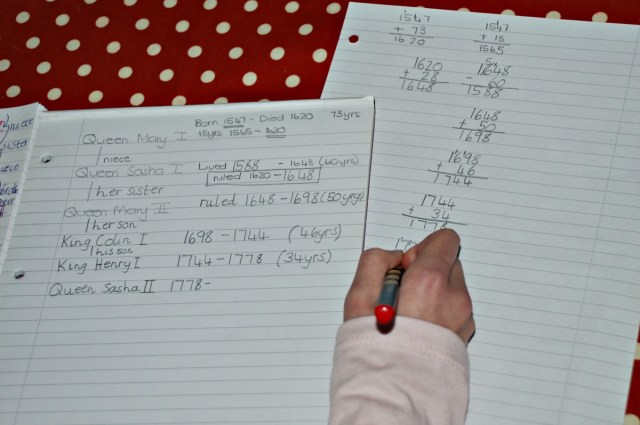 niece
sister
Born 1547 - Died 1620 73yrs
Queen Mary I 18yrs 1565-1620
niece
Queen Sasha I Lived 1588 - 1648 (60yrs)
ruled 1620-1648
her sister
Queen Mary II ruled 1648-1698 (50yrs)
her son
King Colin I 1698-1744 (46yrs)
his son
King Henry I 1744-1778 (34yrs)
Queen Sasha II 1778-
1547
+ 73
1620
1547
+ 18
1565
1620
+ 28
1648
1648
- 60
1588
1648
+ 50
1698
1698
+ 46
1744
1744
+ 34
1778